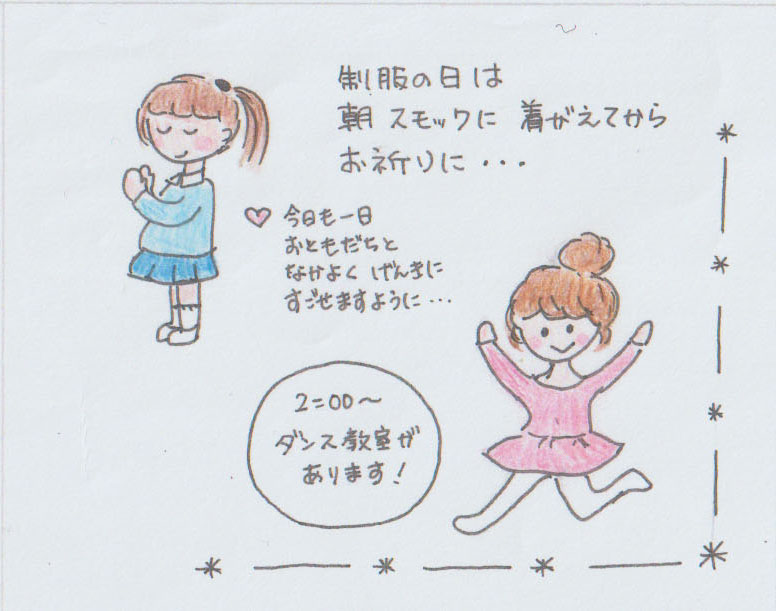 制服の日は
朝 スモックに 着がえてから
お祈りに・・・
♡ 今日も一日
おともだちと
なかよく げんきに
すごせますように・・・
2:00〜
ダンス教室が
あります!